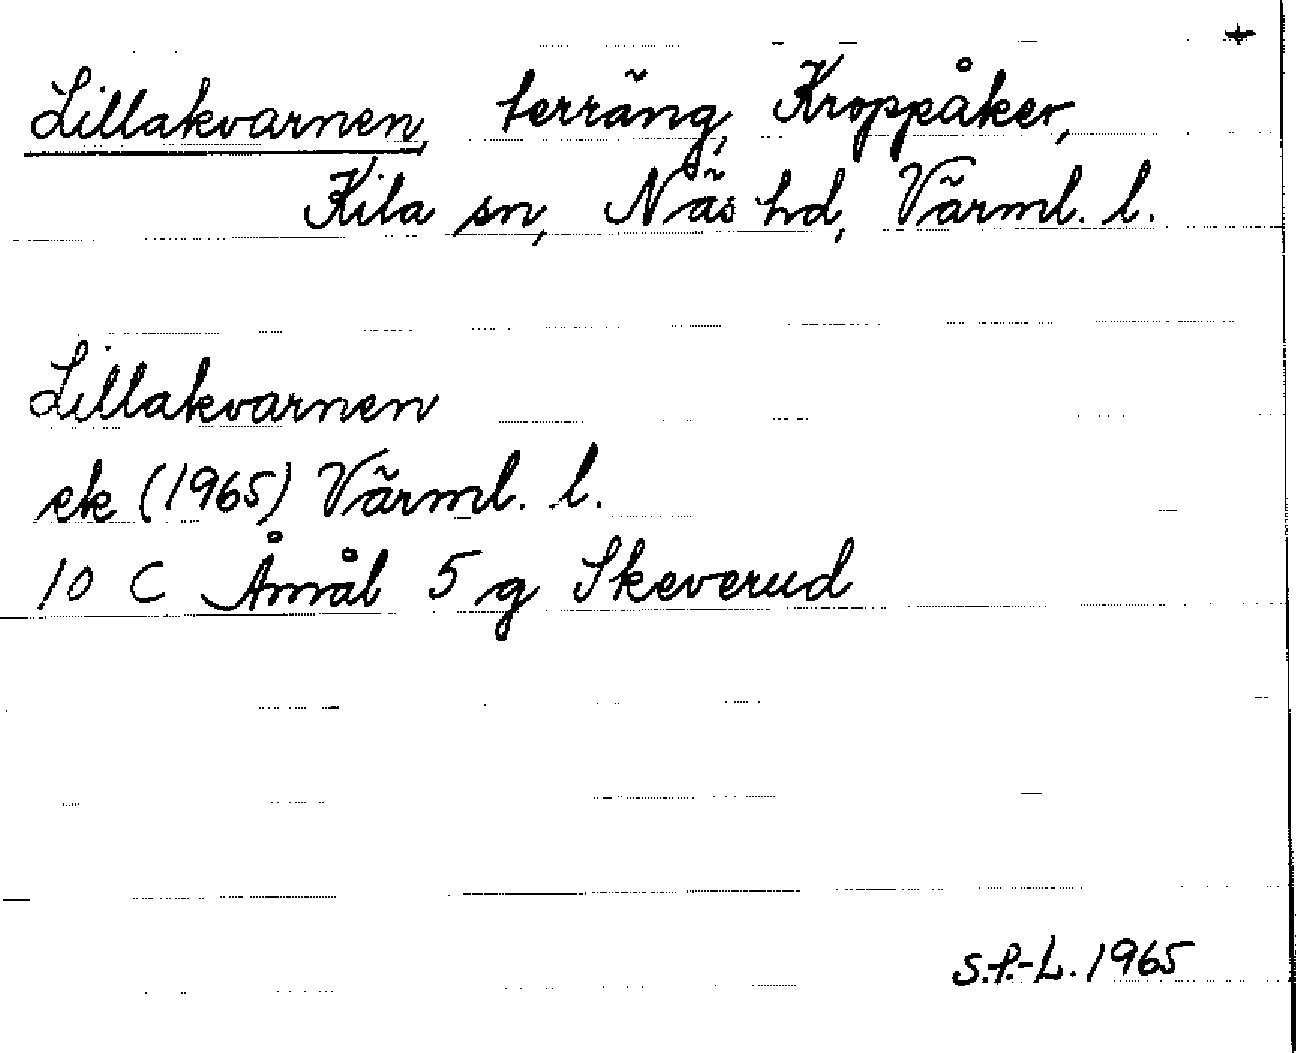 +
Lillakvarnen, terräng, Kroppåker,
Kila sn, Näs hd, Värml. l.
Lillakvarnen
ek (1965) Värml. l.
10 C Åmål 5 g Skeverud
S.P.-L. 1965